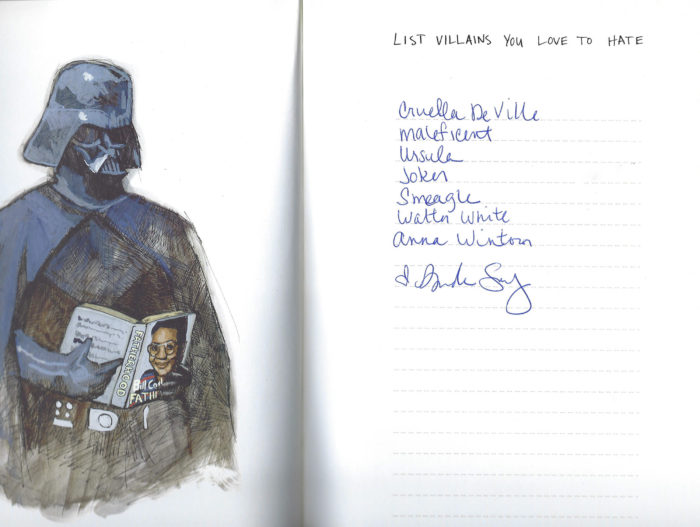 LIST VILLAINS YOU LOVE TO HATE
Cruella DeVille
maleficent
Ursula
Joker
Smeagle
Walter White
Anna Wintour
FATHERHOOD
Bill Cos
FATH